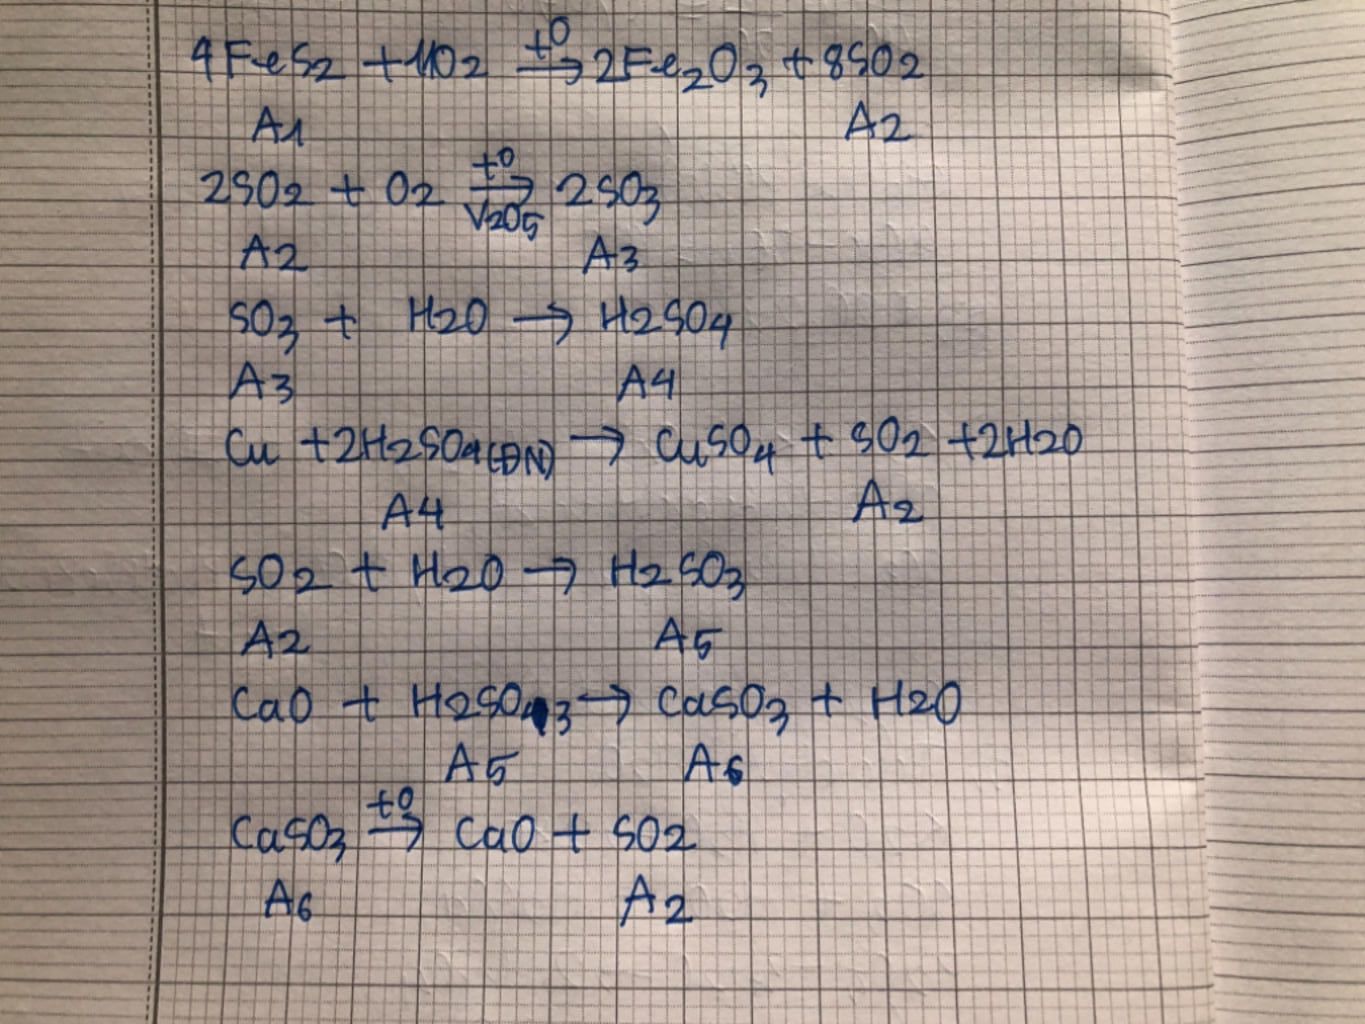 4FeS2 + 11O2 t0→ 2Fe2O3 + 8SO2
A1 A2
2SO2 + O2 t0→ V2O5 2SO3
A2 A3
SO3 + H2O → H2SO4
A3 A4
Cu + 2H2SO4(ĐN) → CuSO4 + SO2 + 2H2O
A4 A2
SO2 + H2O → H2SO3
A2 A5
CaO + H2SO3 → CaSO3 + H2O
A5 A6
CaSO3 t0→ CaO + SO2
A6 A2